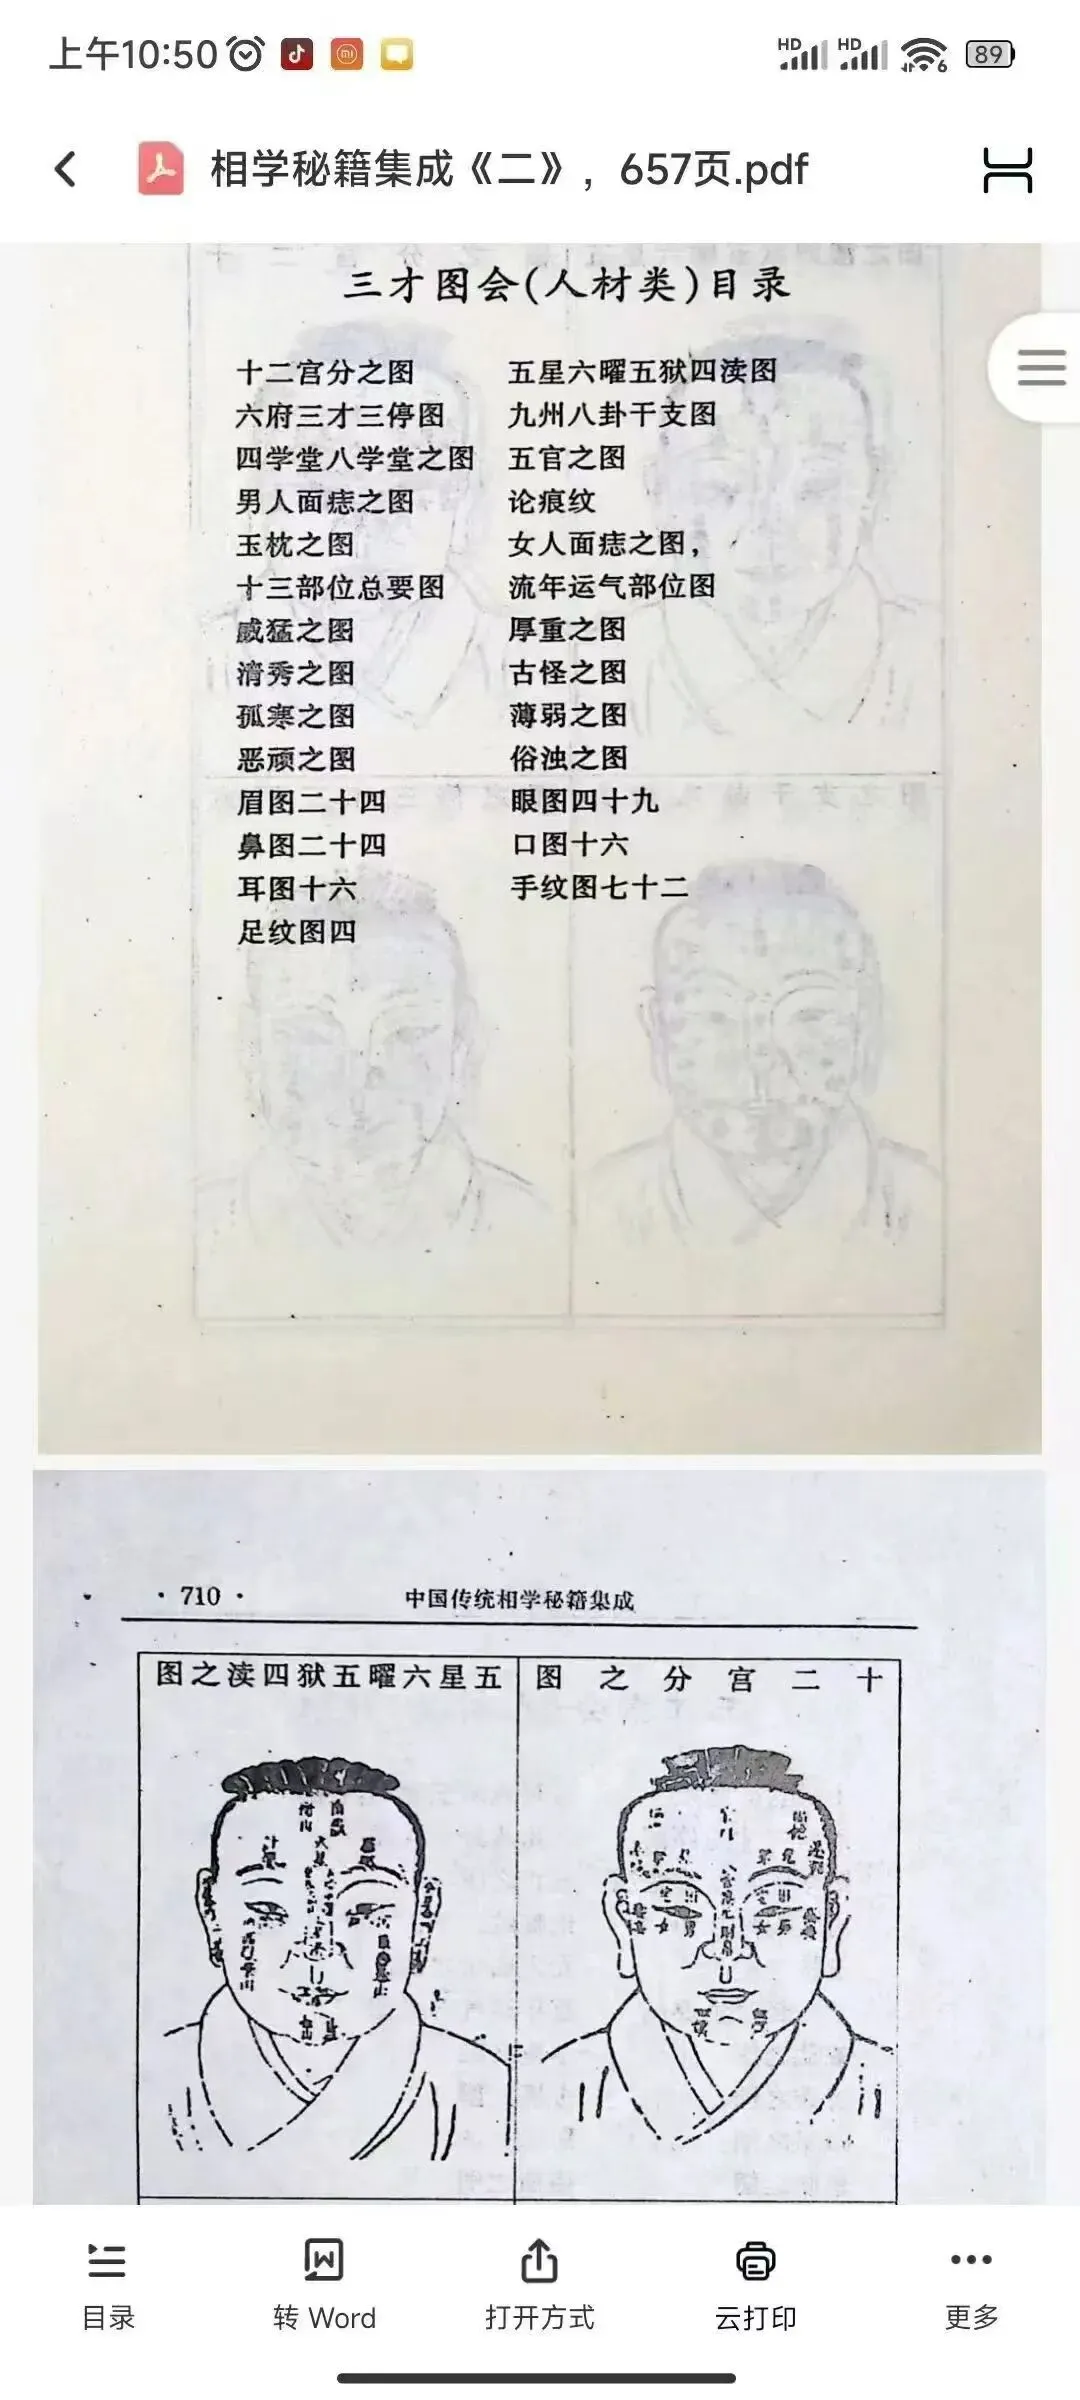 上午10:50
HD HD 6 89
相学秘籍集成《二》，657页.pdf
三才图会(人材类)目录
十二宫分之图 五星六曜五狱四渎图
六府三才三停图 九州八卦干支图
四学堂八学堂之图 五官之图
男人面痣之图 论痕纹
玉枕之图 女人面痣之图，
十三部位总要图 流年运气部位图
威猛之图 厚重之图
清秀之图 古怪之图
孤寒之图 薄弱之图
恶顽之图 俗浊之图
眉图二十四 眼图四十九
鼻图二十四 口图十六
耳图十六 手纹图七十二
足纹图四
·710· 中国传统相学秘籍集成
图之渎四狱五曜六星五 图之分宫二十
目录 转 Word 打开方式 云打印 更多